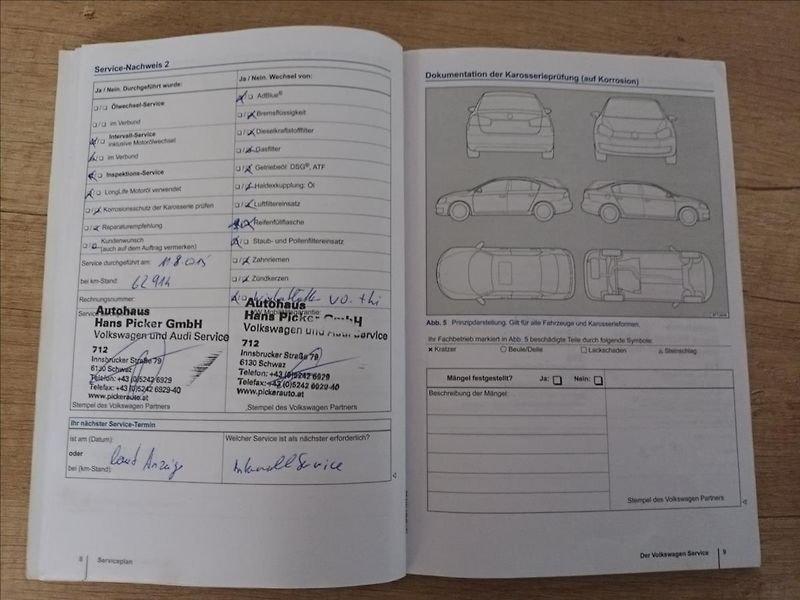 Service-Nachweis 2
Ja / Nein. Durchgeführt wurde:
Ölwechsel-Service
im Verbund
Intervall-Service
inklusive Motorölwechsel
im Verbund
Inspektions-Service
LongLife Motoröl verwendet
Korrosionsschutz der Karosserie prüfen
Reparaturempfehlung
Kundenwunsch
(auch auf dem Auftrag vermerken)
Service durchgeführt am:
bei km-Stand:
Rechnungsnummer:
Ja / Nein. Wechsel von:
AdBlue®
Bremsflüssigkeit
Dieselkraftstofffilter
Gasfilter
Getriebeöl: DSG®, ATF
Haldexkupplung: Öl
Luftfiltereinsatz
Reifenfüllflasche
Staub- und Pollenfiltereinsatz
Zahnriemen
Zündkerzen
Autohaus
Hans Picker GmbH
Volkswagen und Audi Service
712
Innsbrucker Straße 79
6130 Schwaz
Telefon: +43 (0)5242 6929
Telefax: +43 (0)5242 6929-40
www.pickerauto.at
Stempel des Volkswagen Partners
Autohaus
Hans Picker GmbH
Volkswagen und Audi Service
712
Innsbrucker Straße 79
6130 Schwaz
Telefon: +43 (0)5242 6929
Telefax: +43 (0)5242 6929-40
www.pickerauto.at
Stempel des Volkswagen Partners
Ihr nächster Service-Termin
ist am (Datum):
oder
bei (km-Stand):
laut Anzeige
Welcher Service ist als nächster erforderlich?
Intervall Service
8 Serviceplan
Dokumentation der Karosserieprüfung (auf Korrosion)
Abb. 5 Prinzipdarstellung. Gilt für alle Fahrzeuge und Karosserieformen.
Ihr Fachbetrieb markiert in Abb. 5 beschädigte Teile durch folgende Symbole:
Kratzer
Beule/Delle
Lackschaden
Steinschlag
Mängel festgestellt? Ja: Nein:
Beschreibung der Mängel:
Stempel des Volkswagen Partners
Der Volkswagen Service 9